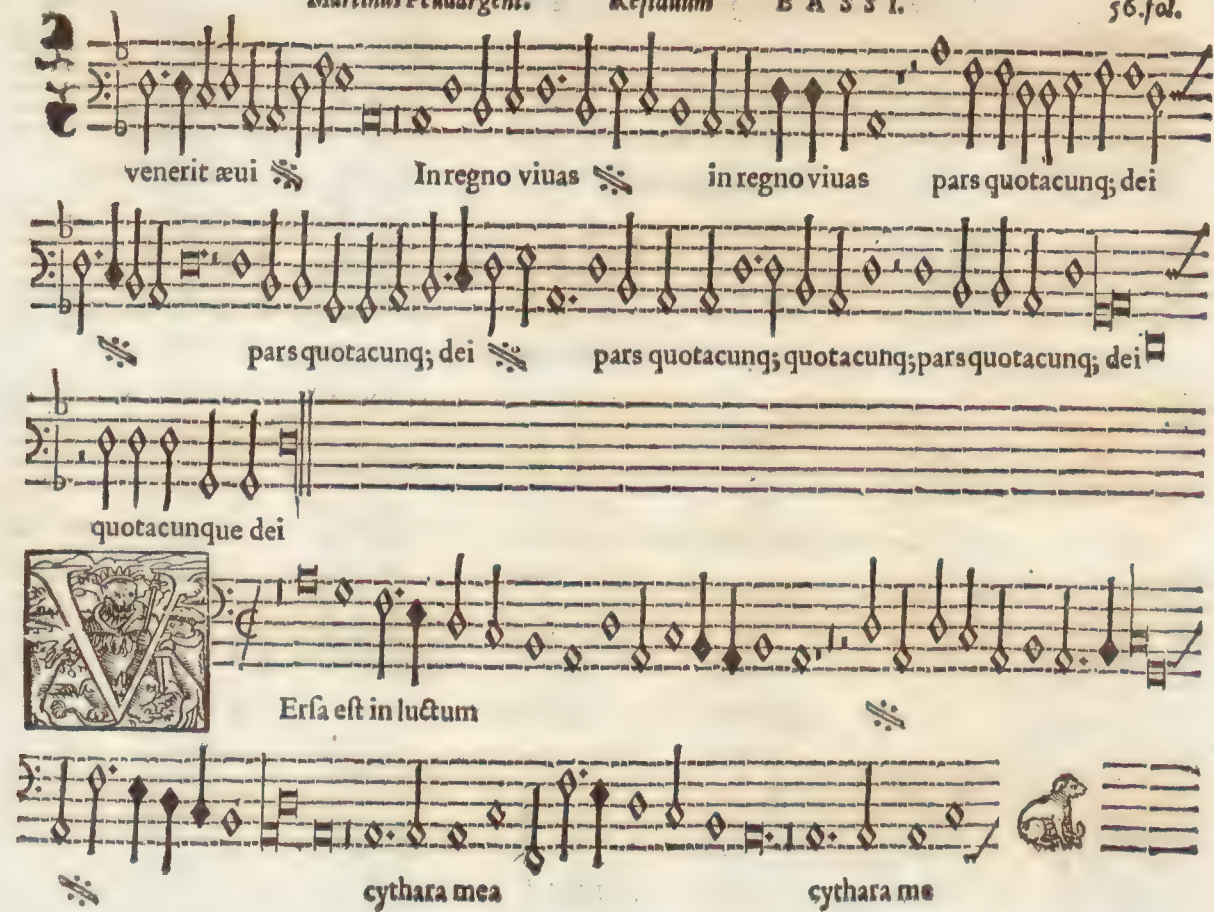 Martinus Peudargent. Residuum B A S S I. 56. fol.
venerit æui In regno viuas in regno viuas pars quotacunq; dei
pars quotacunq; dei pars quotacunq; quotacunq; pars quotacunq; dei
quotacunque dei
V Ersa est in luctum
cythara mea cythara me